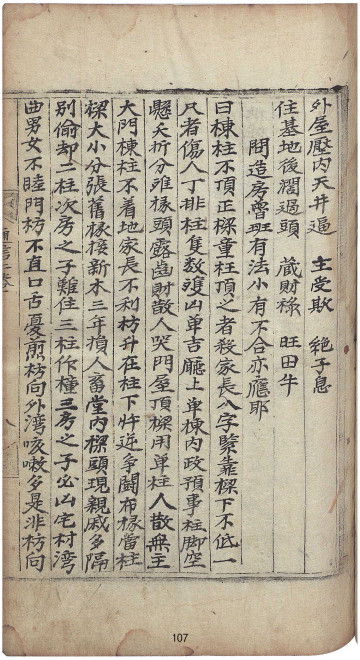 外屋壓內天井逼　主受欺　絕子息
住基地後濶過頭　蔵財祿　旺田牛
問造房曾班有法小有不合亦應耶
曰棟柱不頂正樑童柱頂之者殺家長八字緊靠樑下不低一
尺者傷人丁排柱隻数雙凶单吉廳上单棟内政預事柱脚空
懸夭折分雖椽頭露齒財散人哭門屋頂樑用单柱人散無主
大門棟柱不着地家長不利枋升在柱下妳近争鬪布椽當柱
樑大小分張舊椽接新木三年損人畜堂内樑頭現親戚多隔
别偷却二柱次房之子難住三柱作橦三房之子必凶宅材湾
曲男女不睦門枋不直口舌憂煎枋向外湾咳嗽多是非枋向
107